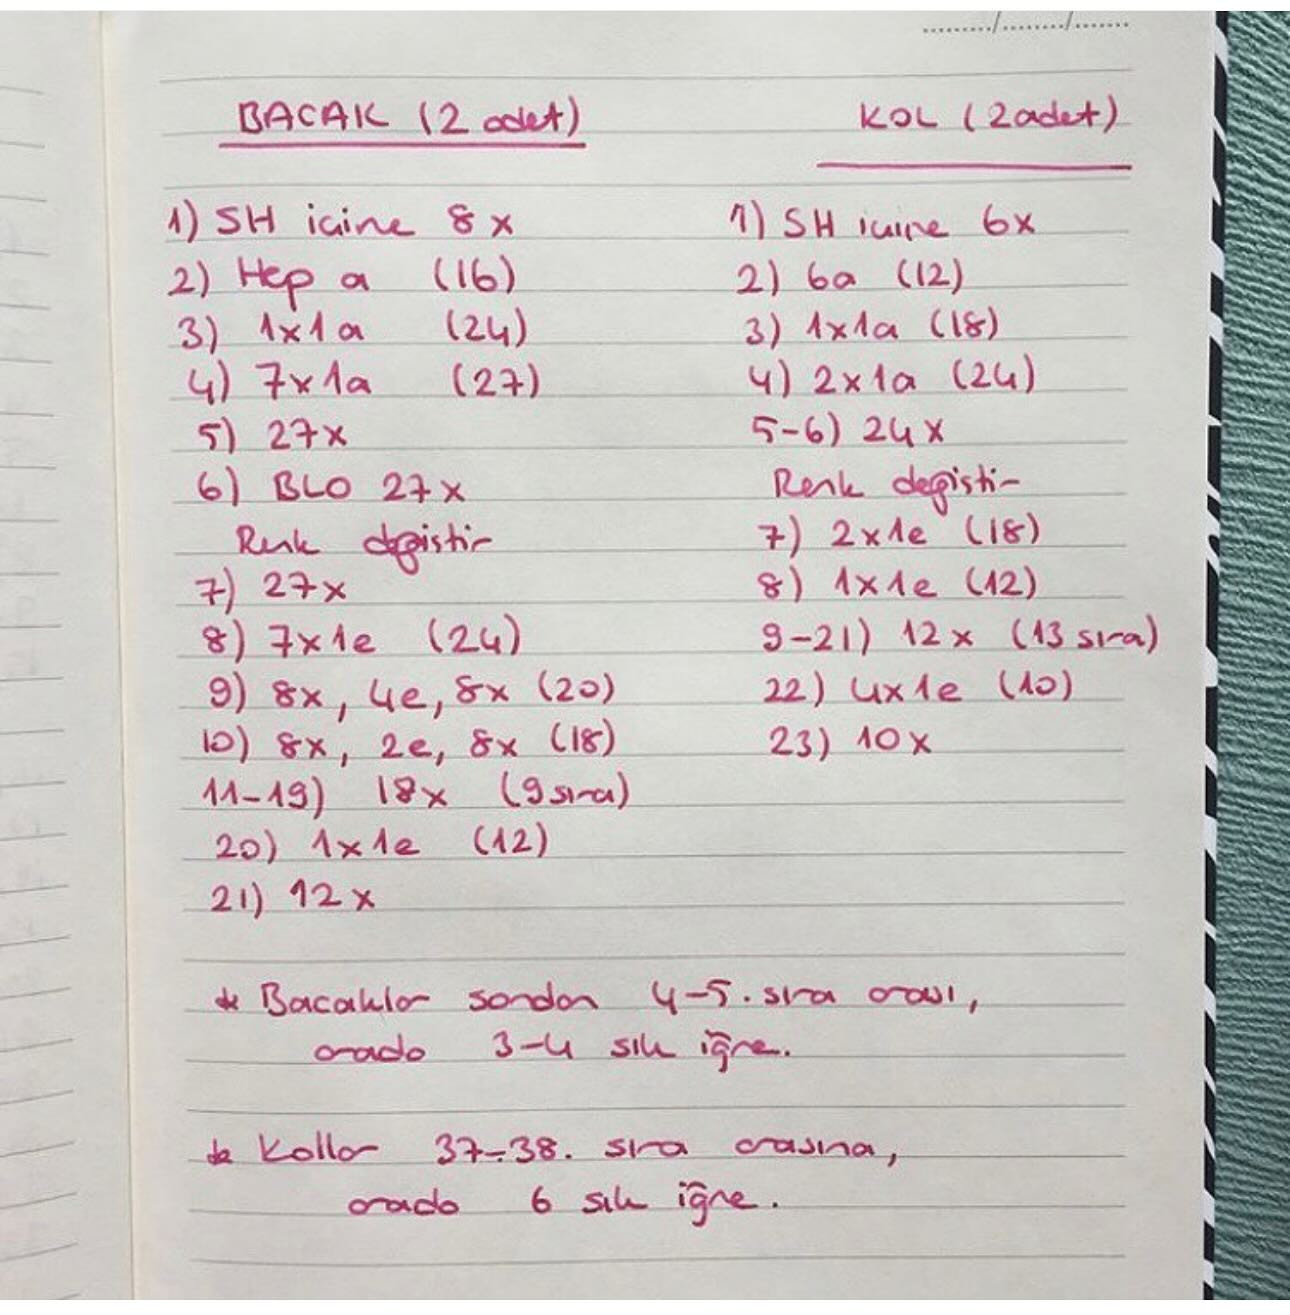 BACAK (2 adet)
1) SH içine 8x
2) Hep a (16)
3) 1x1a (24)
4) 7x1a (27)
5) 27x
6) BLO 27x
Renk degistir
7) 27x
8) 7x1e (24)
9) 8x, 4e, 8x (20)
10) 8x, 2e, 8x (18)
11-19) 18x (9 sıra)
20) 1x1e (12)
21) 12x
KOL (2 adet)
1) SH içine 6x
2) 6a (12)
3) 1x1a (18)
4) 2x1a (24)
5-6) 24x
Renk degistir
7) 2x1e (18)
8) 1x1e (12)
9-21) 12x (13 sıra)
22) 4x1e (10)
23) 10x
* Bacaklar sondan 4-5. sıra arası,
arada 3-4 sık iğne.
* Kollar 37-38. sıra arasına,
arada 6 sık iğne.